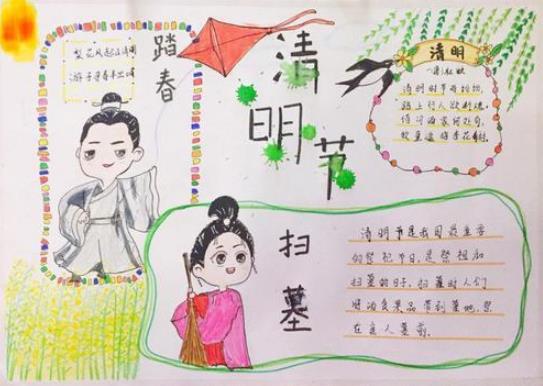 梨花风起正清明
游子寻春半出城
踏春
清明节
清明
(唐)杜牧
清明时节雨纷纷,
路上行人欲断魂。
借问酒家何处有,
牧童遥指杏花村。
扫墓
清明节是我国最重要
的祭祀节日,是祭祖和
扫墓的日子,扫墓时人们
将酒食果品带到墓地,祭
在亲人墓前。